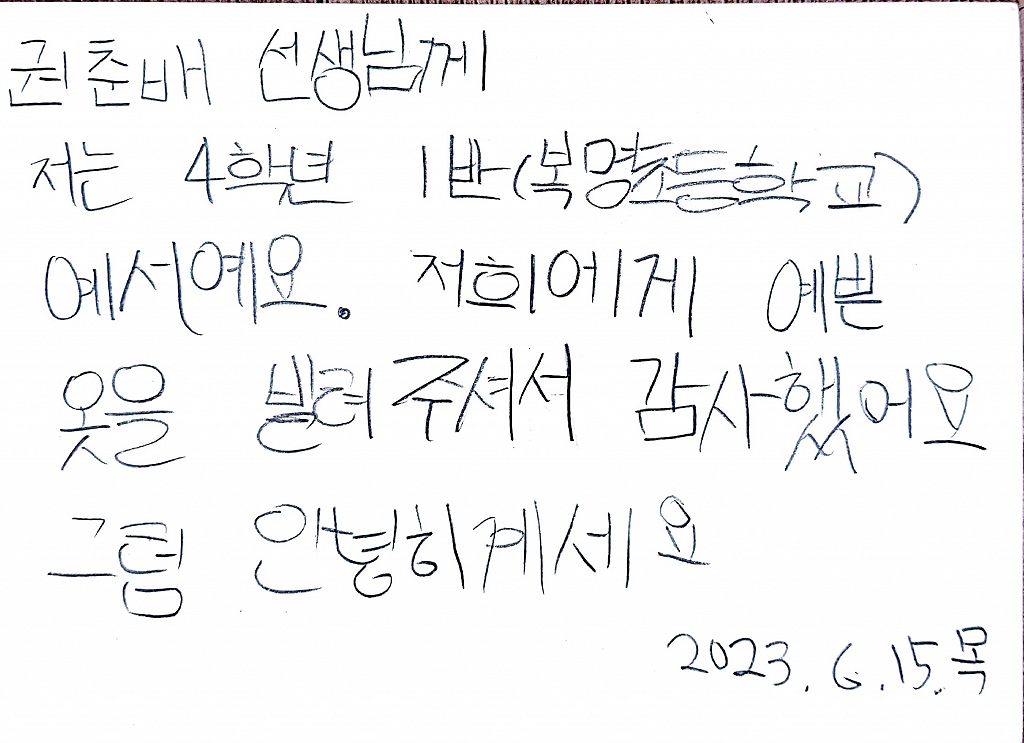 권춘배 선생님께
저는 4학년 1반(복명초등학교)
예서예요. 저희에게 예쁜
옷을 빌려주셔서 감사했어요
그럼 안녕히계세요
2023. 6. 15. 목